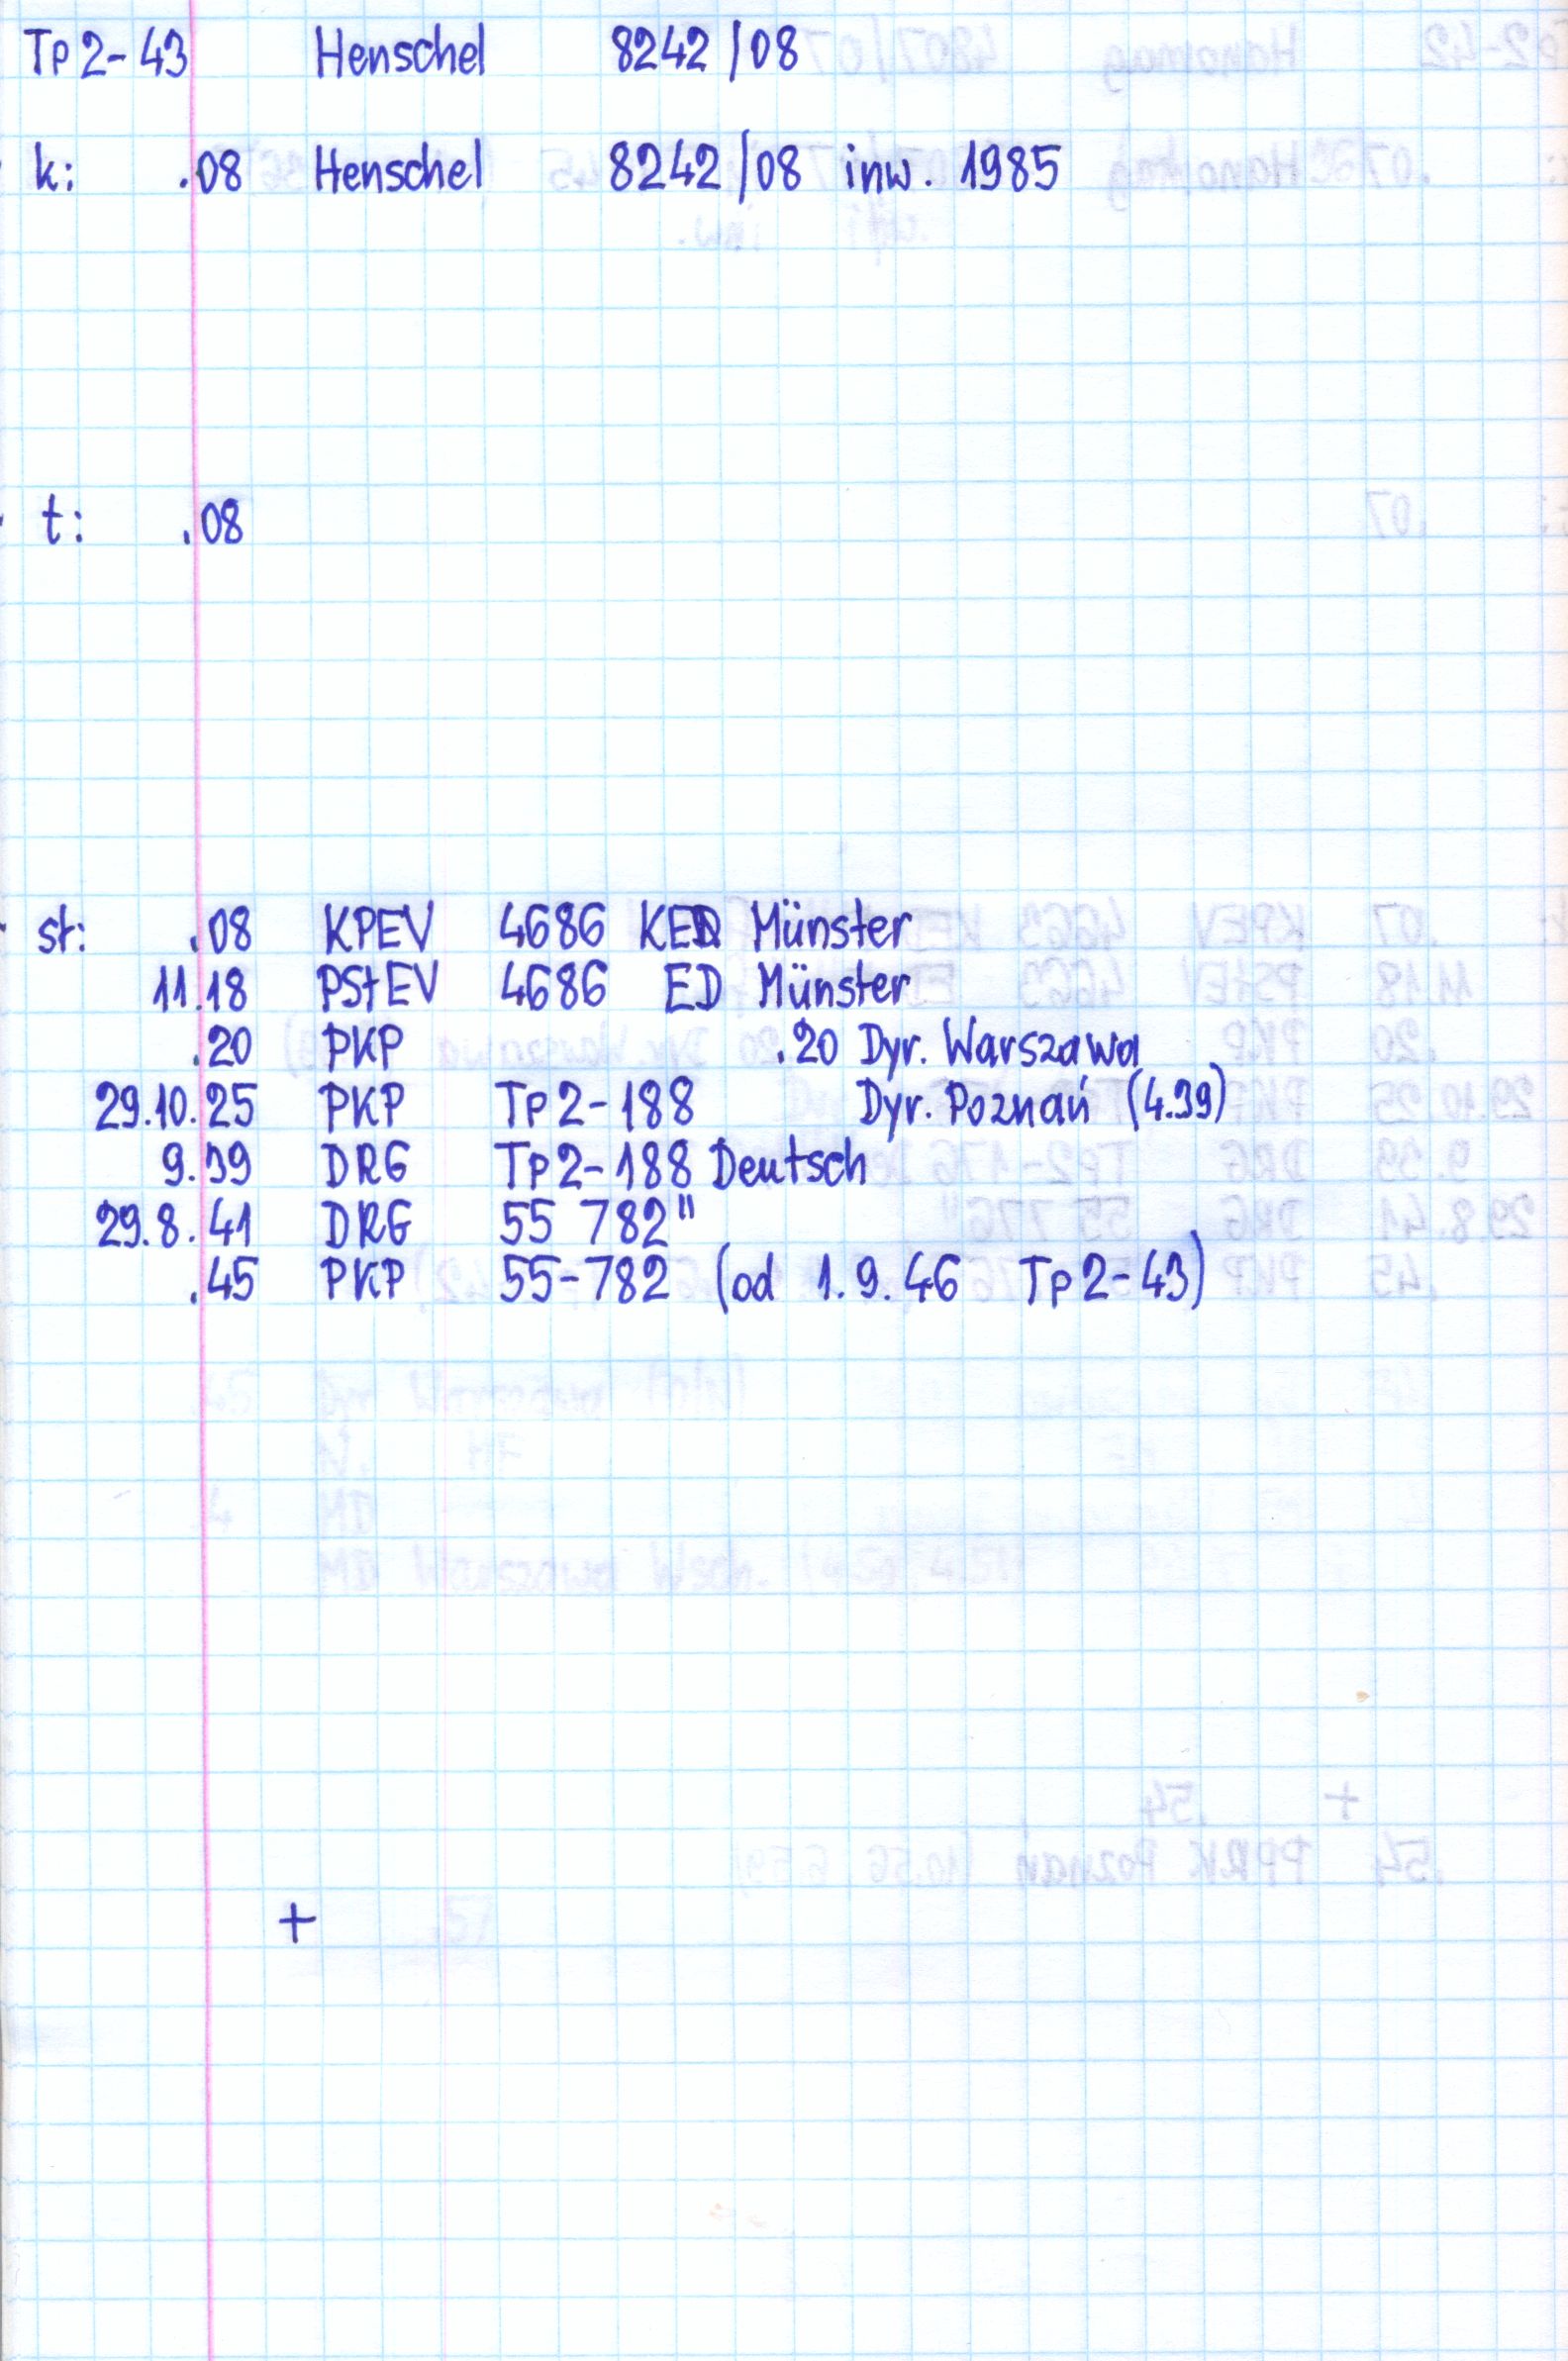 Tp2-43 Henschel 8242/08
k: .08 Henschel 8242/08 inw. 1985
t: .08
st: .08 KPEV 4686 KED Münster
11.18 PStEV 4686 ED Münster
.20 PKP .20 Dyr. Warszawa
29.10.25 PKP Tp2-188 Dyr. Poznań (4.39)
9.39 DRG Tp2-188 Deutsch
29.8.41 DRG 55 782"
.45 PKP 55-782 (od 1.9.46 Tp2-43)
+